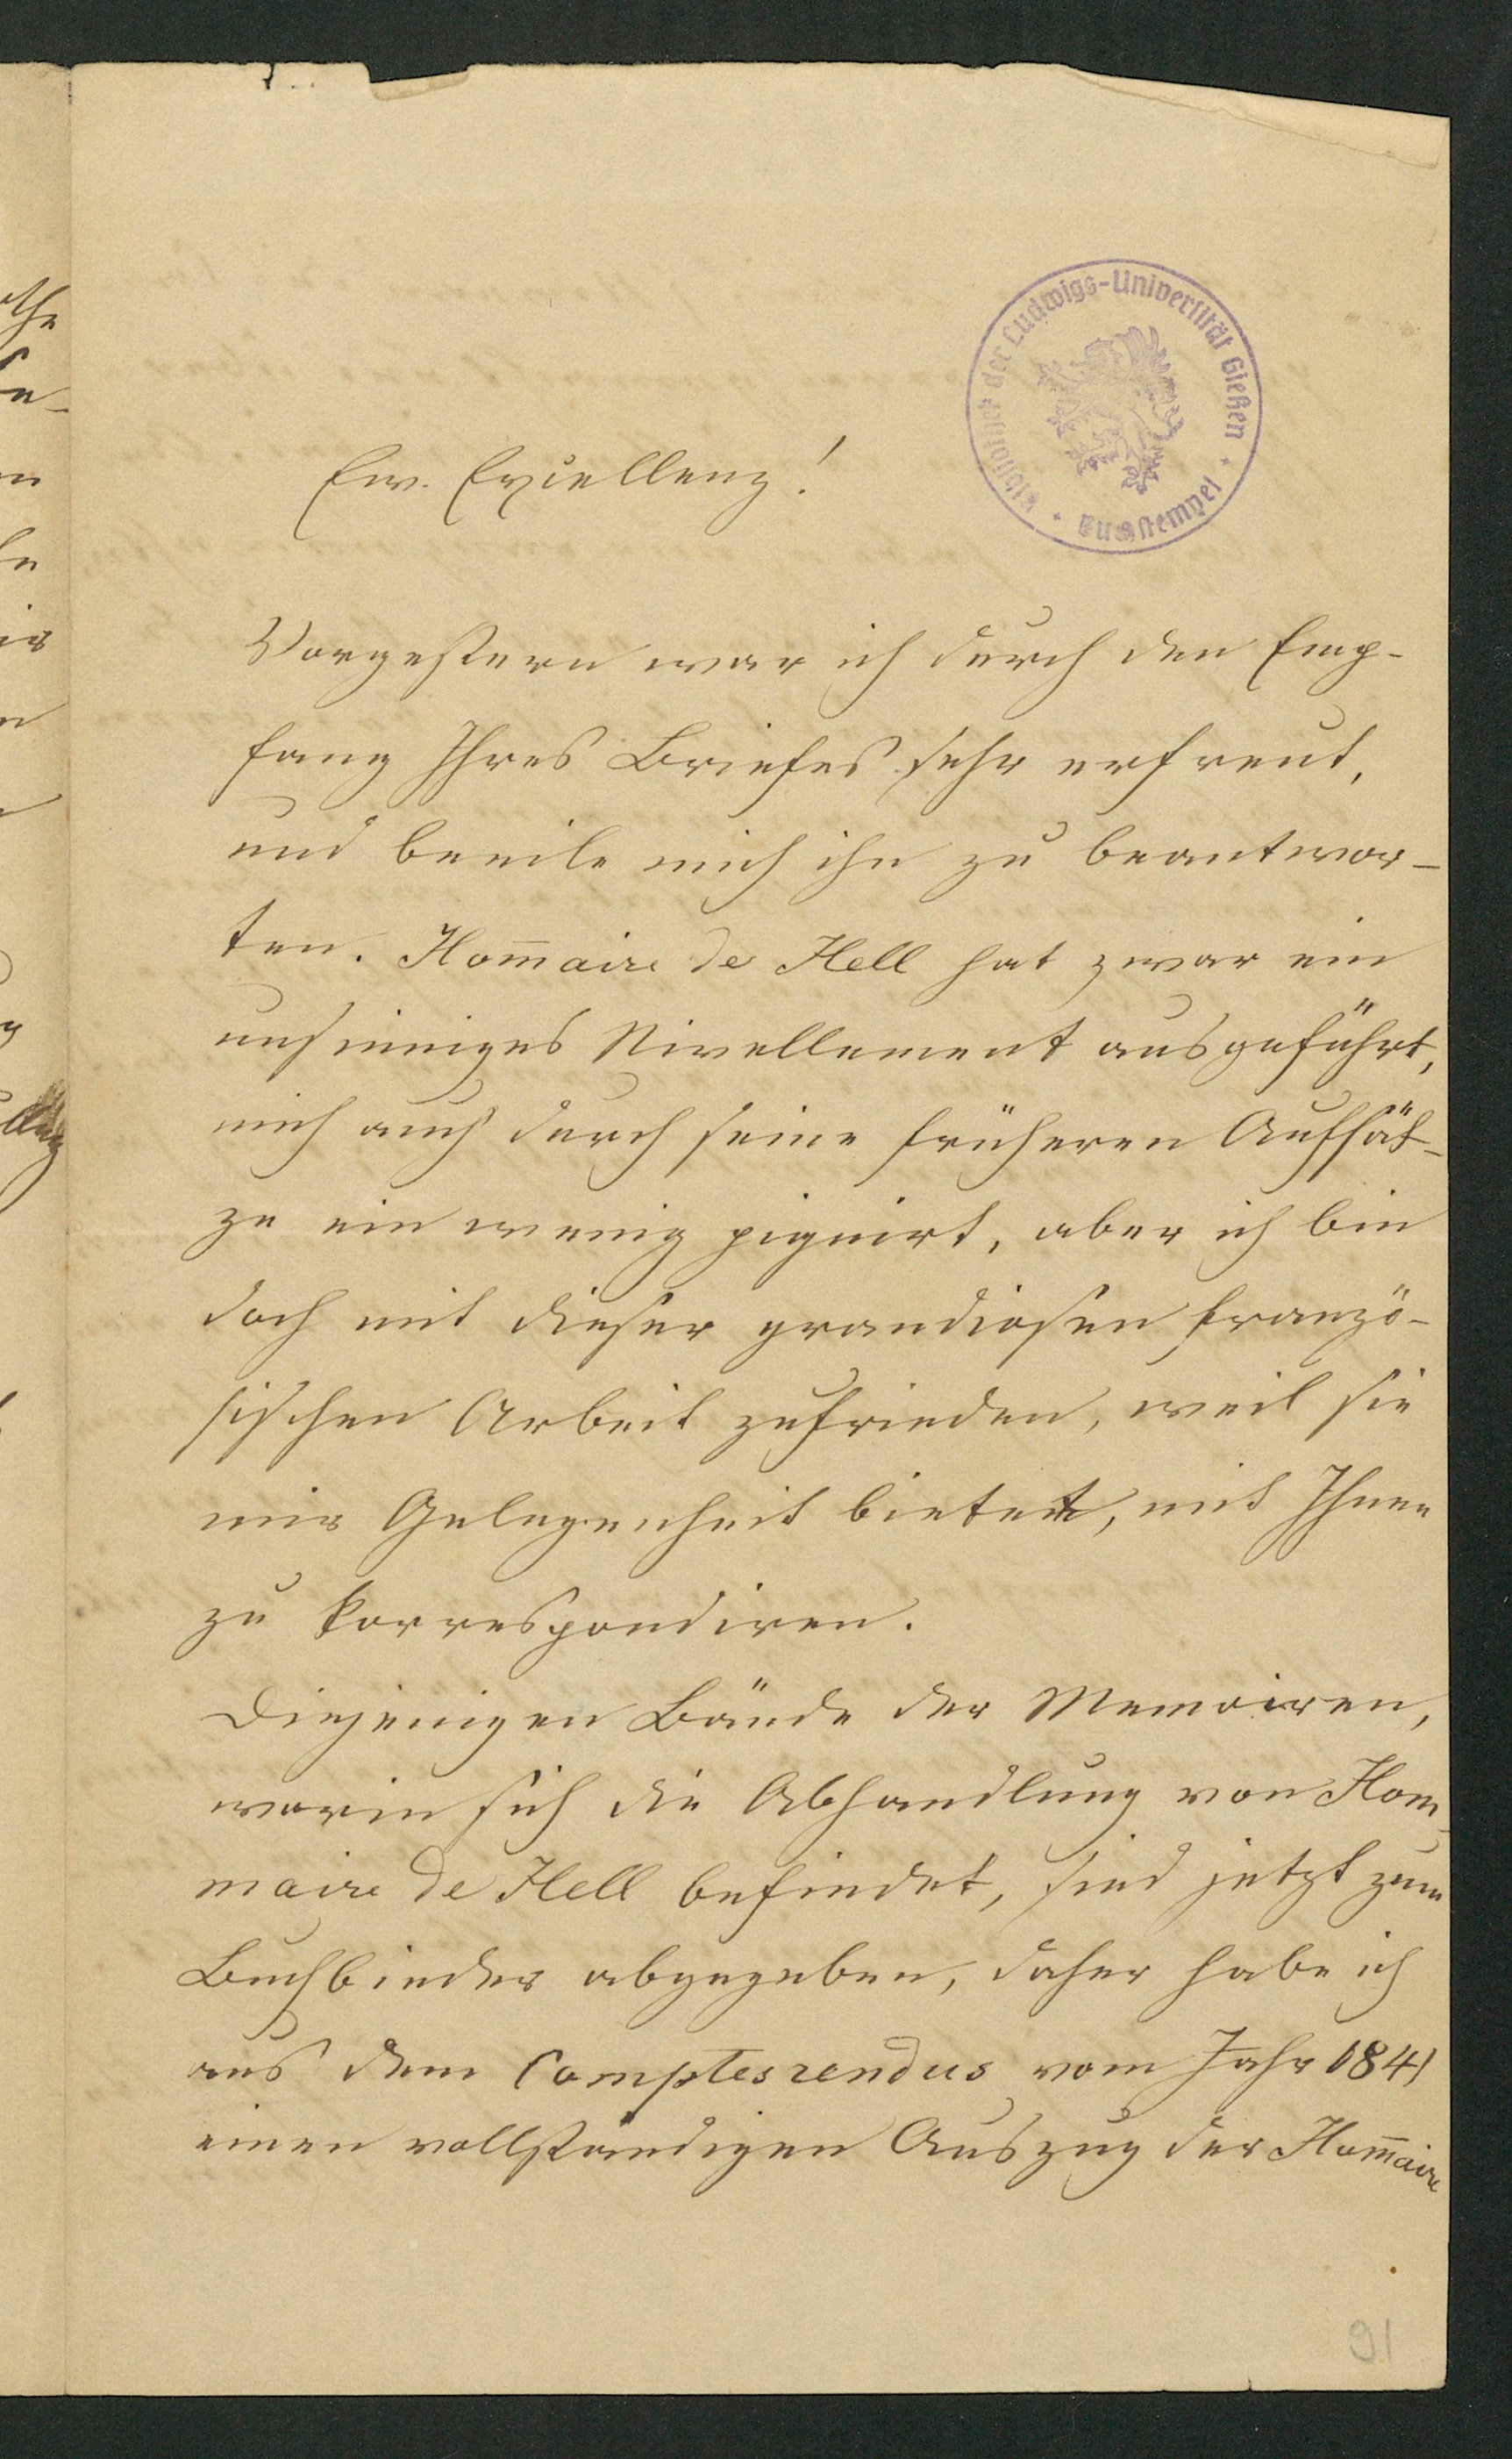 Bibliothek der Ludwigs-Universität Gießen
* Buchstempel *
Ew. Excellenz!
Vorgestern war ich durch den Emp-
fang Ihres Briefes sehr erfreut,
und beeile mich ihn zu beantwor-
ten. Hom̄aire de Hell hat zwar ein
unsinniges Nivellement ausgeführt,
mich auch durch seine früheren Aufsät-
ze ein wenig piquirt, aber ich bin
doch mit dieser grandiosen franzö-
sischen Arbeit zufrieden, weil sie
mir Gelegenheit bietet, mit Ihnen
zu korrespondiren.
Diejenigen Bände der Memoiren,
worin sich die Abhandlung von Hom-
maire de Hell befindet, sind jetzt zum
Buchbinder abgegeben, daher habe ich
aus dem Comptes rendus vom Jahr 1841
einen vollständigen Auszug der Hom̄aire
91